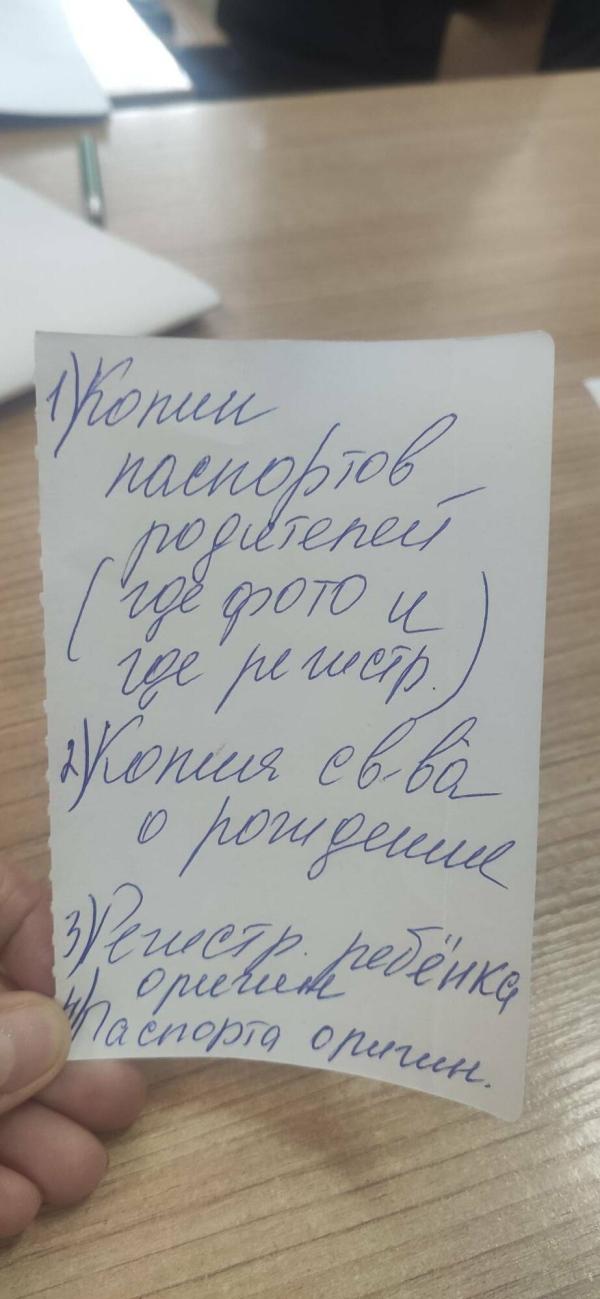 1) Копии
паспортов
родителей
(где фото и
где регистр.)
2) Копия св-ва
о рождении
3) Регистр. ребёнка
оригин
4) Паспорта оригин.